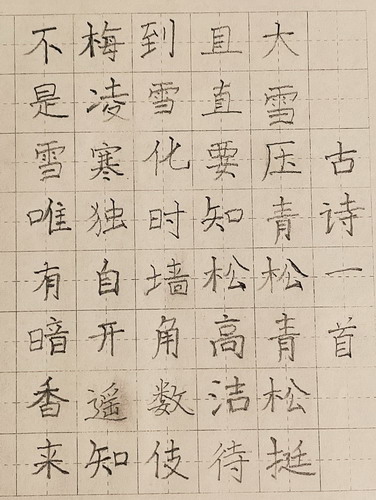 古诗一首
大雪压青松青松挺
且直要知松高洁待
到雪化时墙角数伎
梅凌寒独自开遥知
不是雪唯有暗香来